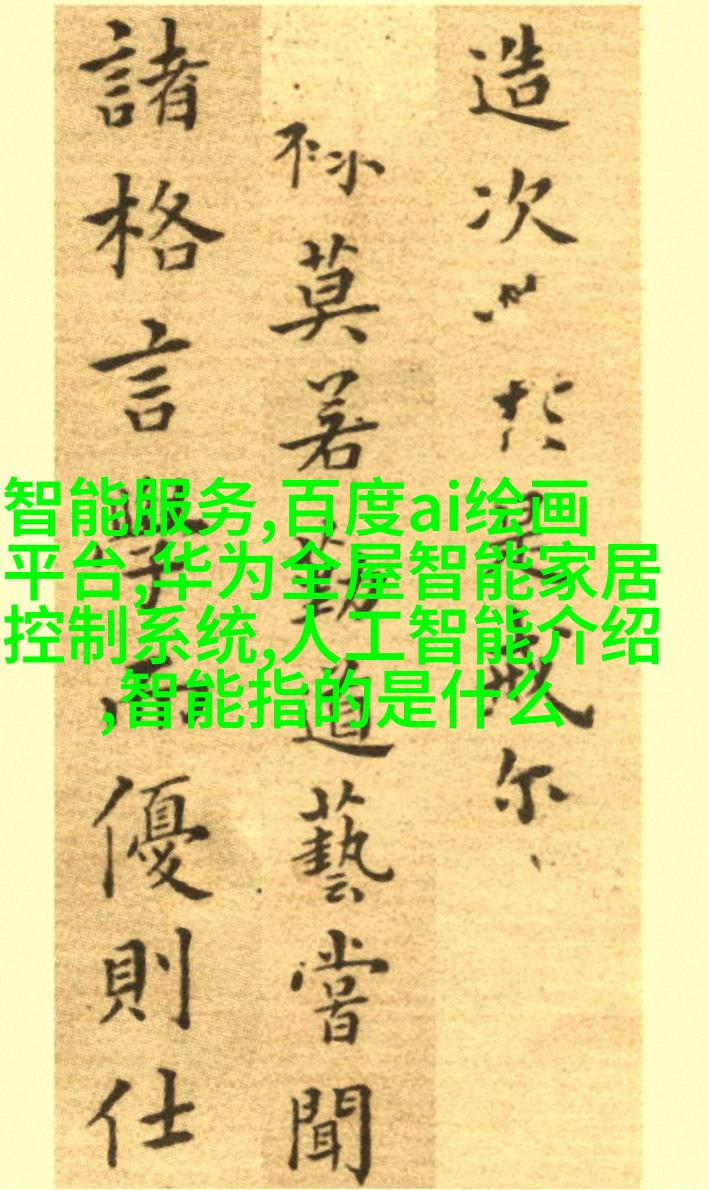 造次必於是戒尔
莫若勤道藝嘗聞
諸格言學而優則仕
智能服务,百度ai绘画
平台,华为全屋智能家居
控制系统,人工智能介绍
,智能指的是什么